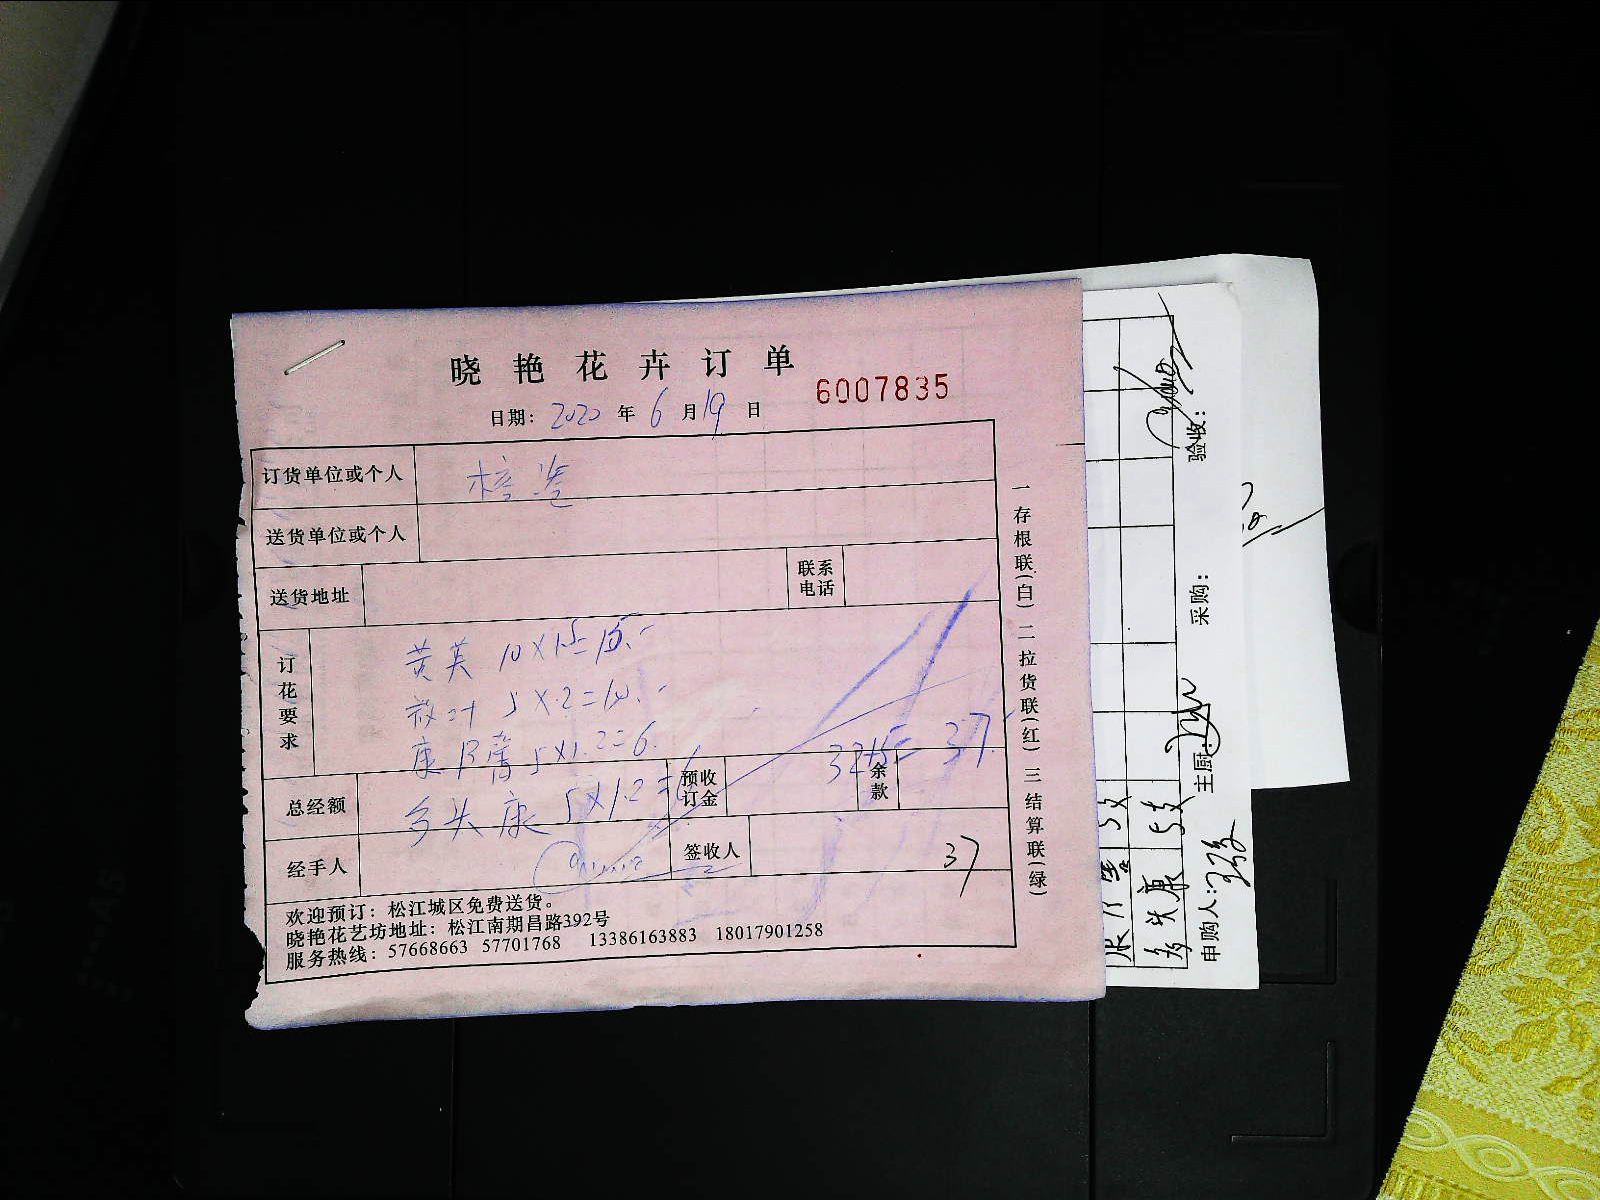 晓艳花卉订单
6007835
日期: 2020 年 6 月 19 日
订货单位或个人
送货单位或个人
送货地址
联系电话
订花要求
黄英 10×1.5=15.-
5×.2=10.-
康 5×1.2=6.
多头康 5×1.2=6
总经额
预收订金
32+5=37.
余款
经手人
签收人
37
欢迎预订: 松江城区免费送货。
晓艳花艺坊地址: 松江南期昌路392号
服务热线: 57668663 57701768 13386163883 18017901258
一存根联(白) 二拉货联(红) 三结算联(绿)
5支
多头康 5支
申购人:
主厨:
采购:
验收: